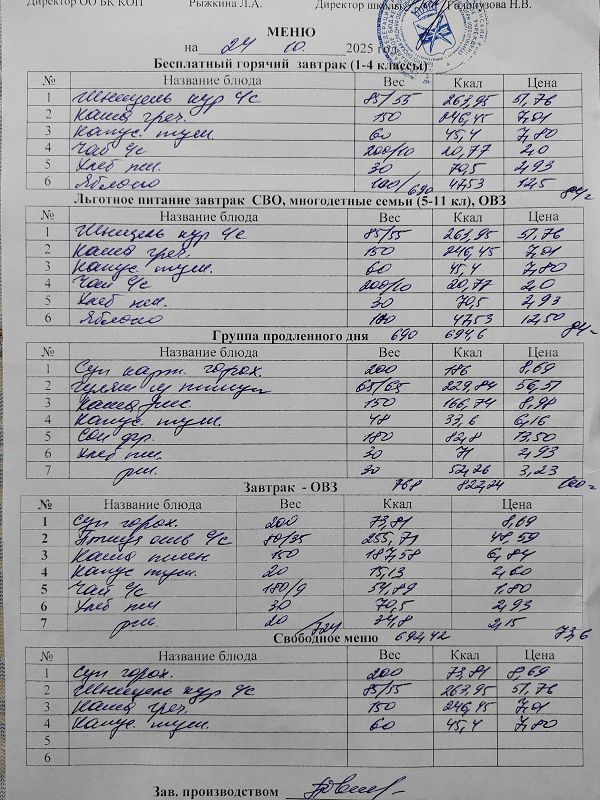 Директор ОО БК КОП Рыжкина Л.А. Директор школы Голопузова Н.В.
МЕНЮ
на 24 10. 2025 год
Бесплатный горячий завтрак (1-4 классы)
№ Название блюда Вес Ккал Цена
1 Шницель кур с/с 85/55 263,95 51,76
2 Каша греч. 150 246,45 7,01
3 Капус. туш. 60 45,4 7,80
4 Чай с/с 200/10 20,77 2,0
5 Хлеб пш. 30 70,5 2,93
6 Яблоко 100/690 47,53 12,5 84/=
Льготное питание завтрак СВО, многодетные семьи (5-11 кл), ОВЗ
№ Название блюда Вес Ккал Цена
1 Шницель кур с/с 85/55 263,95 51,76
2 Каша греч. 150 246,45 7,01
3 Капус. туш. 60 45,4 7,80
4 Чай с/с 200/10 20,77 2,0
5 Хлеб пш. 30 70,5 2,93
6 Яблоко 100 47,53 12,50
Группа продленного дня 690 694,6 84=
№ Название блюда Вес Ккал Цена
1 Суп карт. горох. 200 186 8,69
2 Гуляш м птицы 65/65 229,84 56,51
3 Каша рис. 150 166,74 8,98
4 Капус. туш. 48 33,6 6,16
5 Сок фр. 180 82,8 13,50
6 Хлеб пш. 30 71 2,93
7 рж. 30 52,26 3,23
Завтрак - ОВЗ 768 822,24 100=
№ Название блюда Вес Ккал Цена
1 Суп горох. 200 73,81 8,69
2 Птица отв с/с 80/35 255,71 48,59
3 Каша пшен. 150 187,58 6,84
4 Капус туш. 20 15,13 2,60
5 Чай с/с 180/9 54,89 1,80
6 Хлеб пш 30 70,5 2,93
7 рж. 20 /724 34,8 2,15
Свободное меню 692,42 73,6
№ Название блюда Вес Ккал Цена
1 Суп горох. 200 73,81 8,69
2 Шницель кур с/с 85/55 263,95 51,76
3 Каша греч. 150 246,45 7,01
4 Капус. туш. 60 45,4 7,80
5
6
Зав. производством